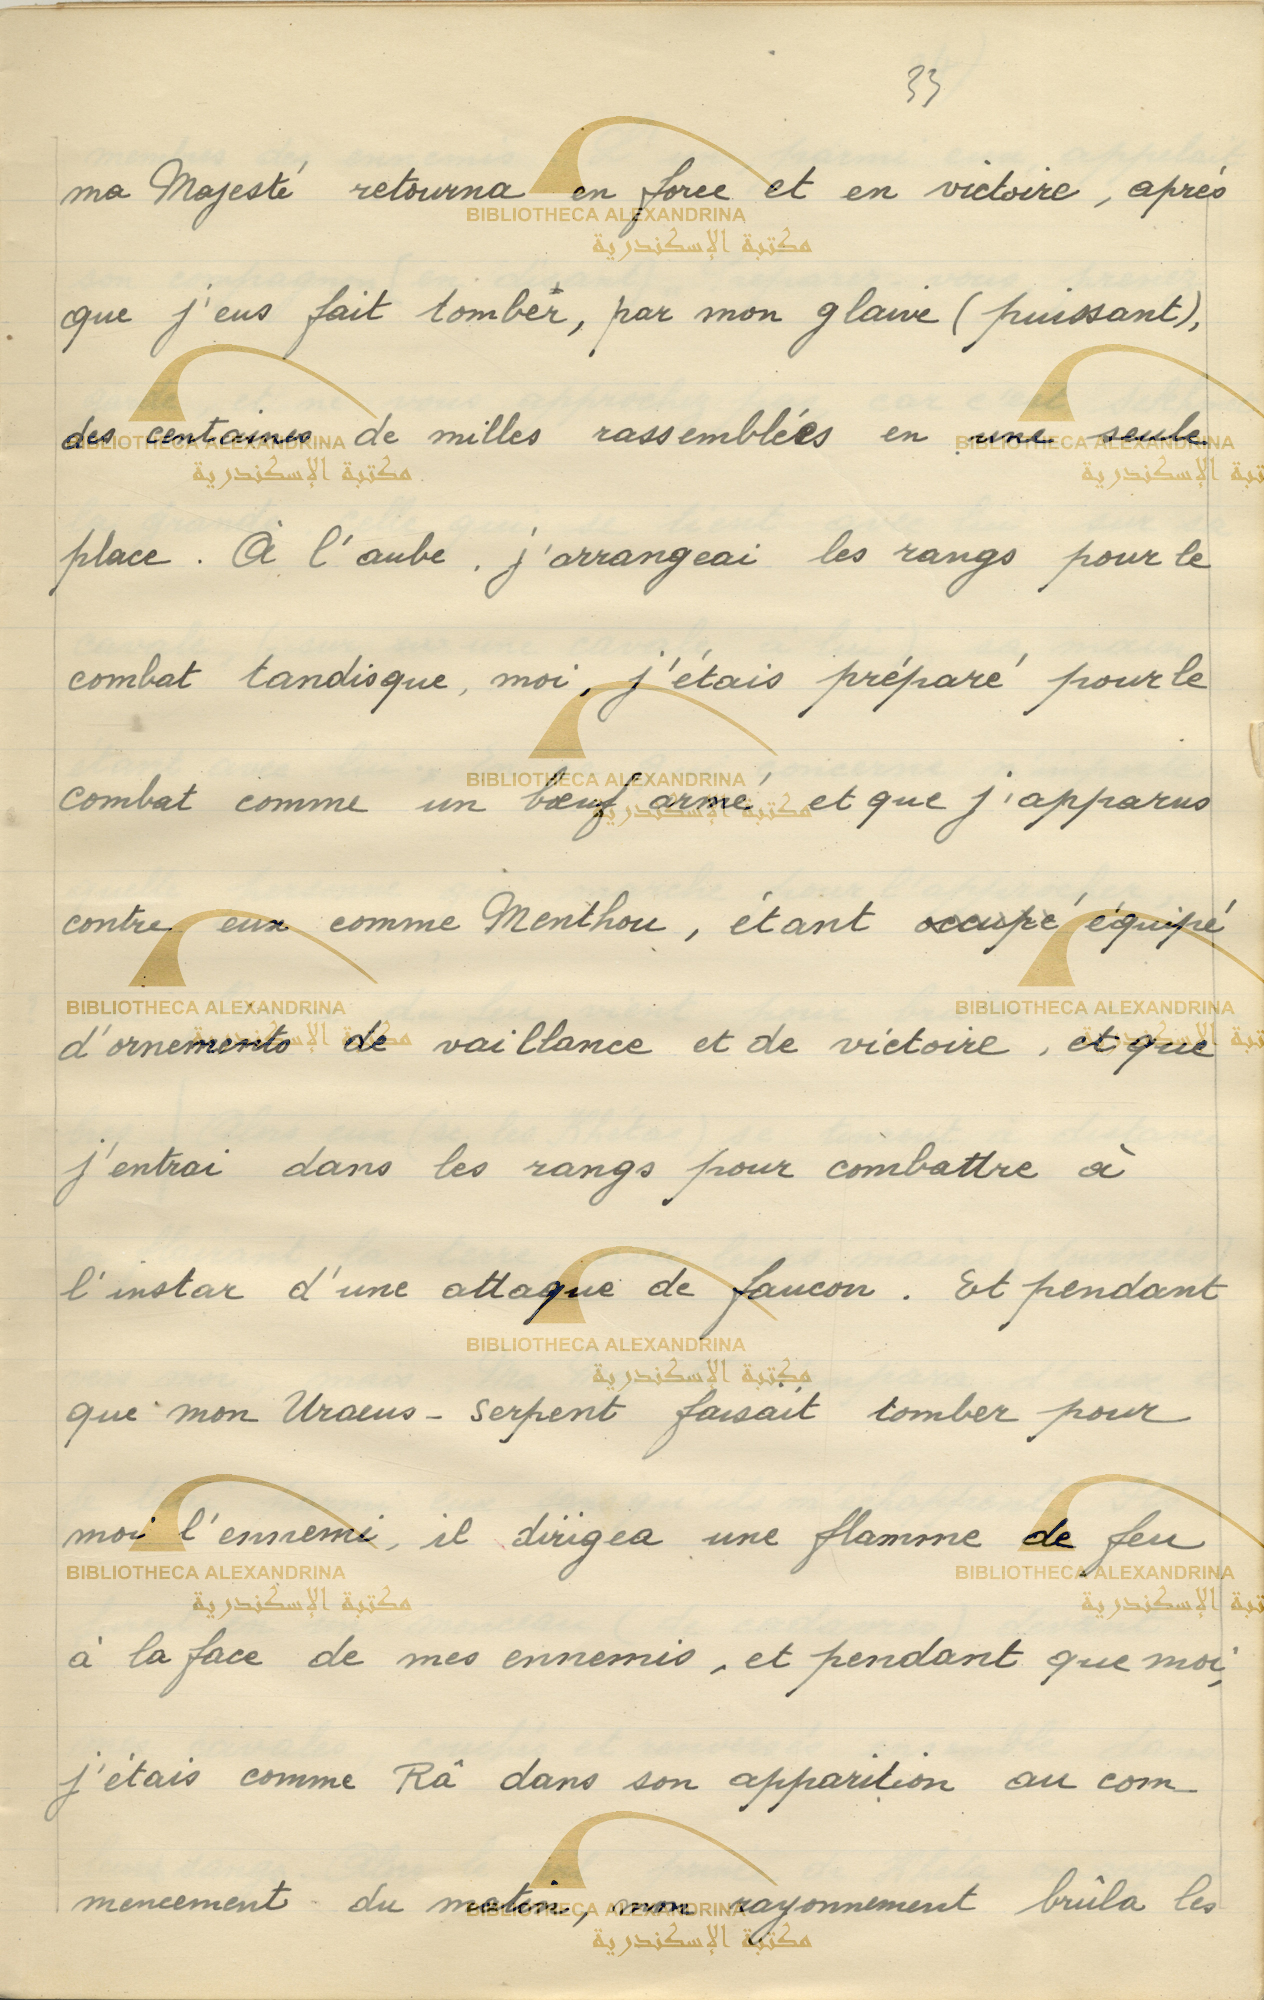 33
ma Majesté retourna en force et en victoire, après
que j'eus fait tomber, par mon glaive (puissant),
des centaines de milles rassemblées en une seule
place. À l'aube, j'arrangeai les rangs pour le
combat tandisque, moi, j'étais préparé pour le
combat comme un bœuf armé et que j'apparus
contre eux comme Menthou, étant occupé équipé
d'ornements de vaillance et de victoire, et que
j'entrai dans les rangs pour combattre à
l'instar d'une attaque de faucon. Et pendant
que mon Uraeus-serpent faisait tomber pour
moi l'ennemi, il dirigea une flamme de feu
à la face de mes ennemis, et pendant que moi,
j'étais comme Râ dans son apparition au com-
mencement du matin, mon rayonnement brûla les
BIBLIOTHECA ALEXANDRINA
مكتبة الإسكندرية